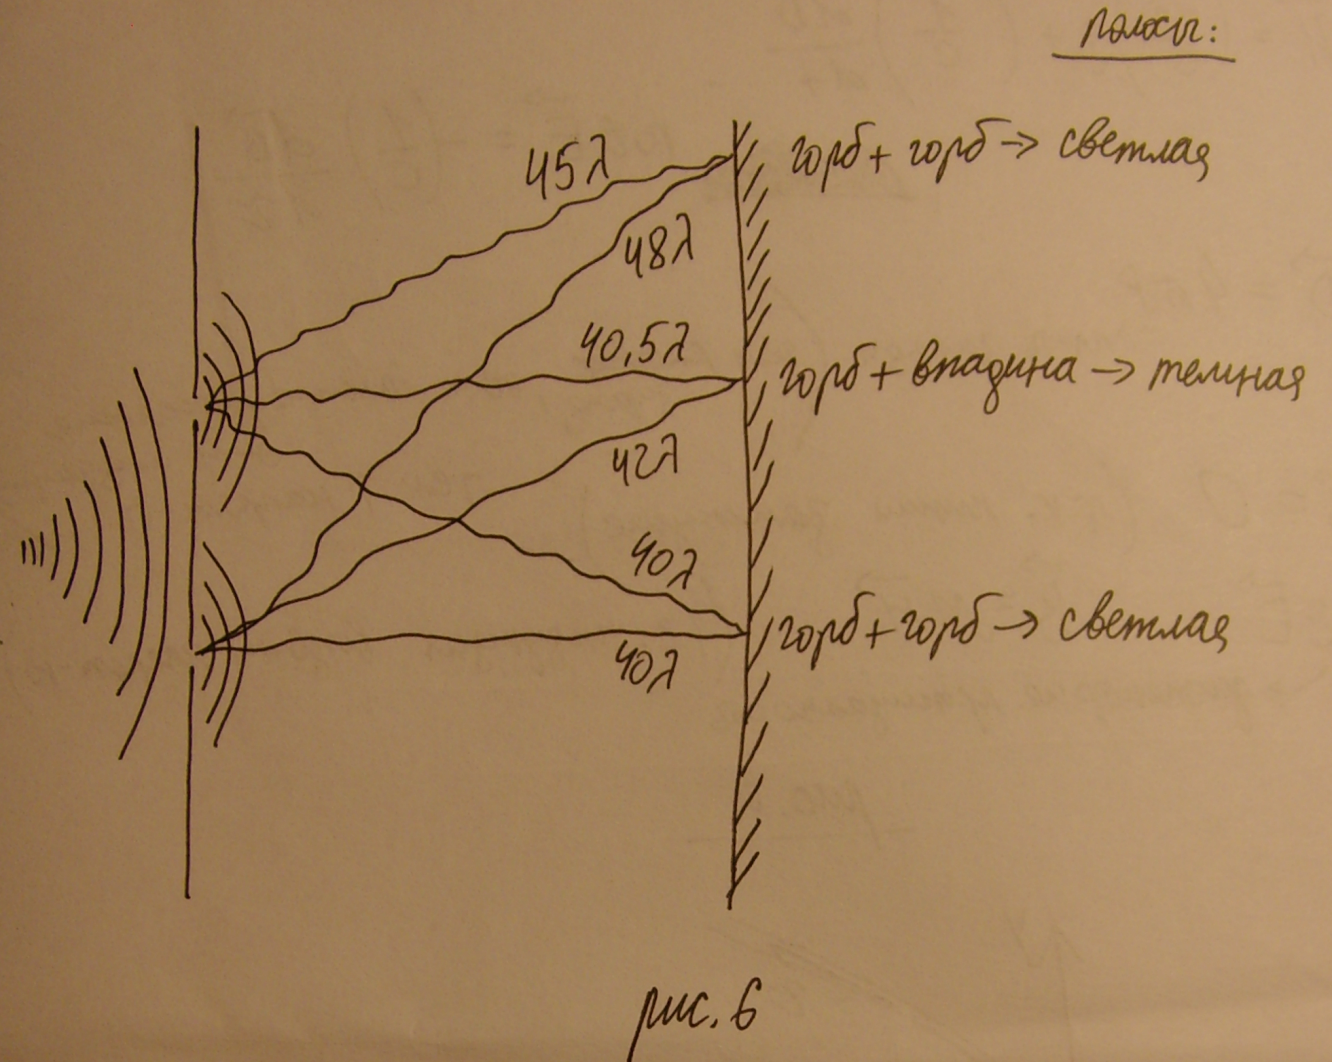 полосы:
45λ
горб + горб → светлая
48λ
40,5λ
горб + впадина → темная
42λ
40λ
горб + горб → светлая
40λ
рис. 6